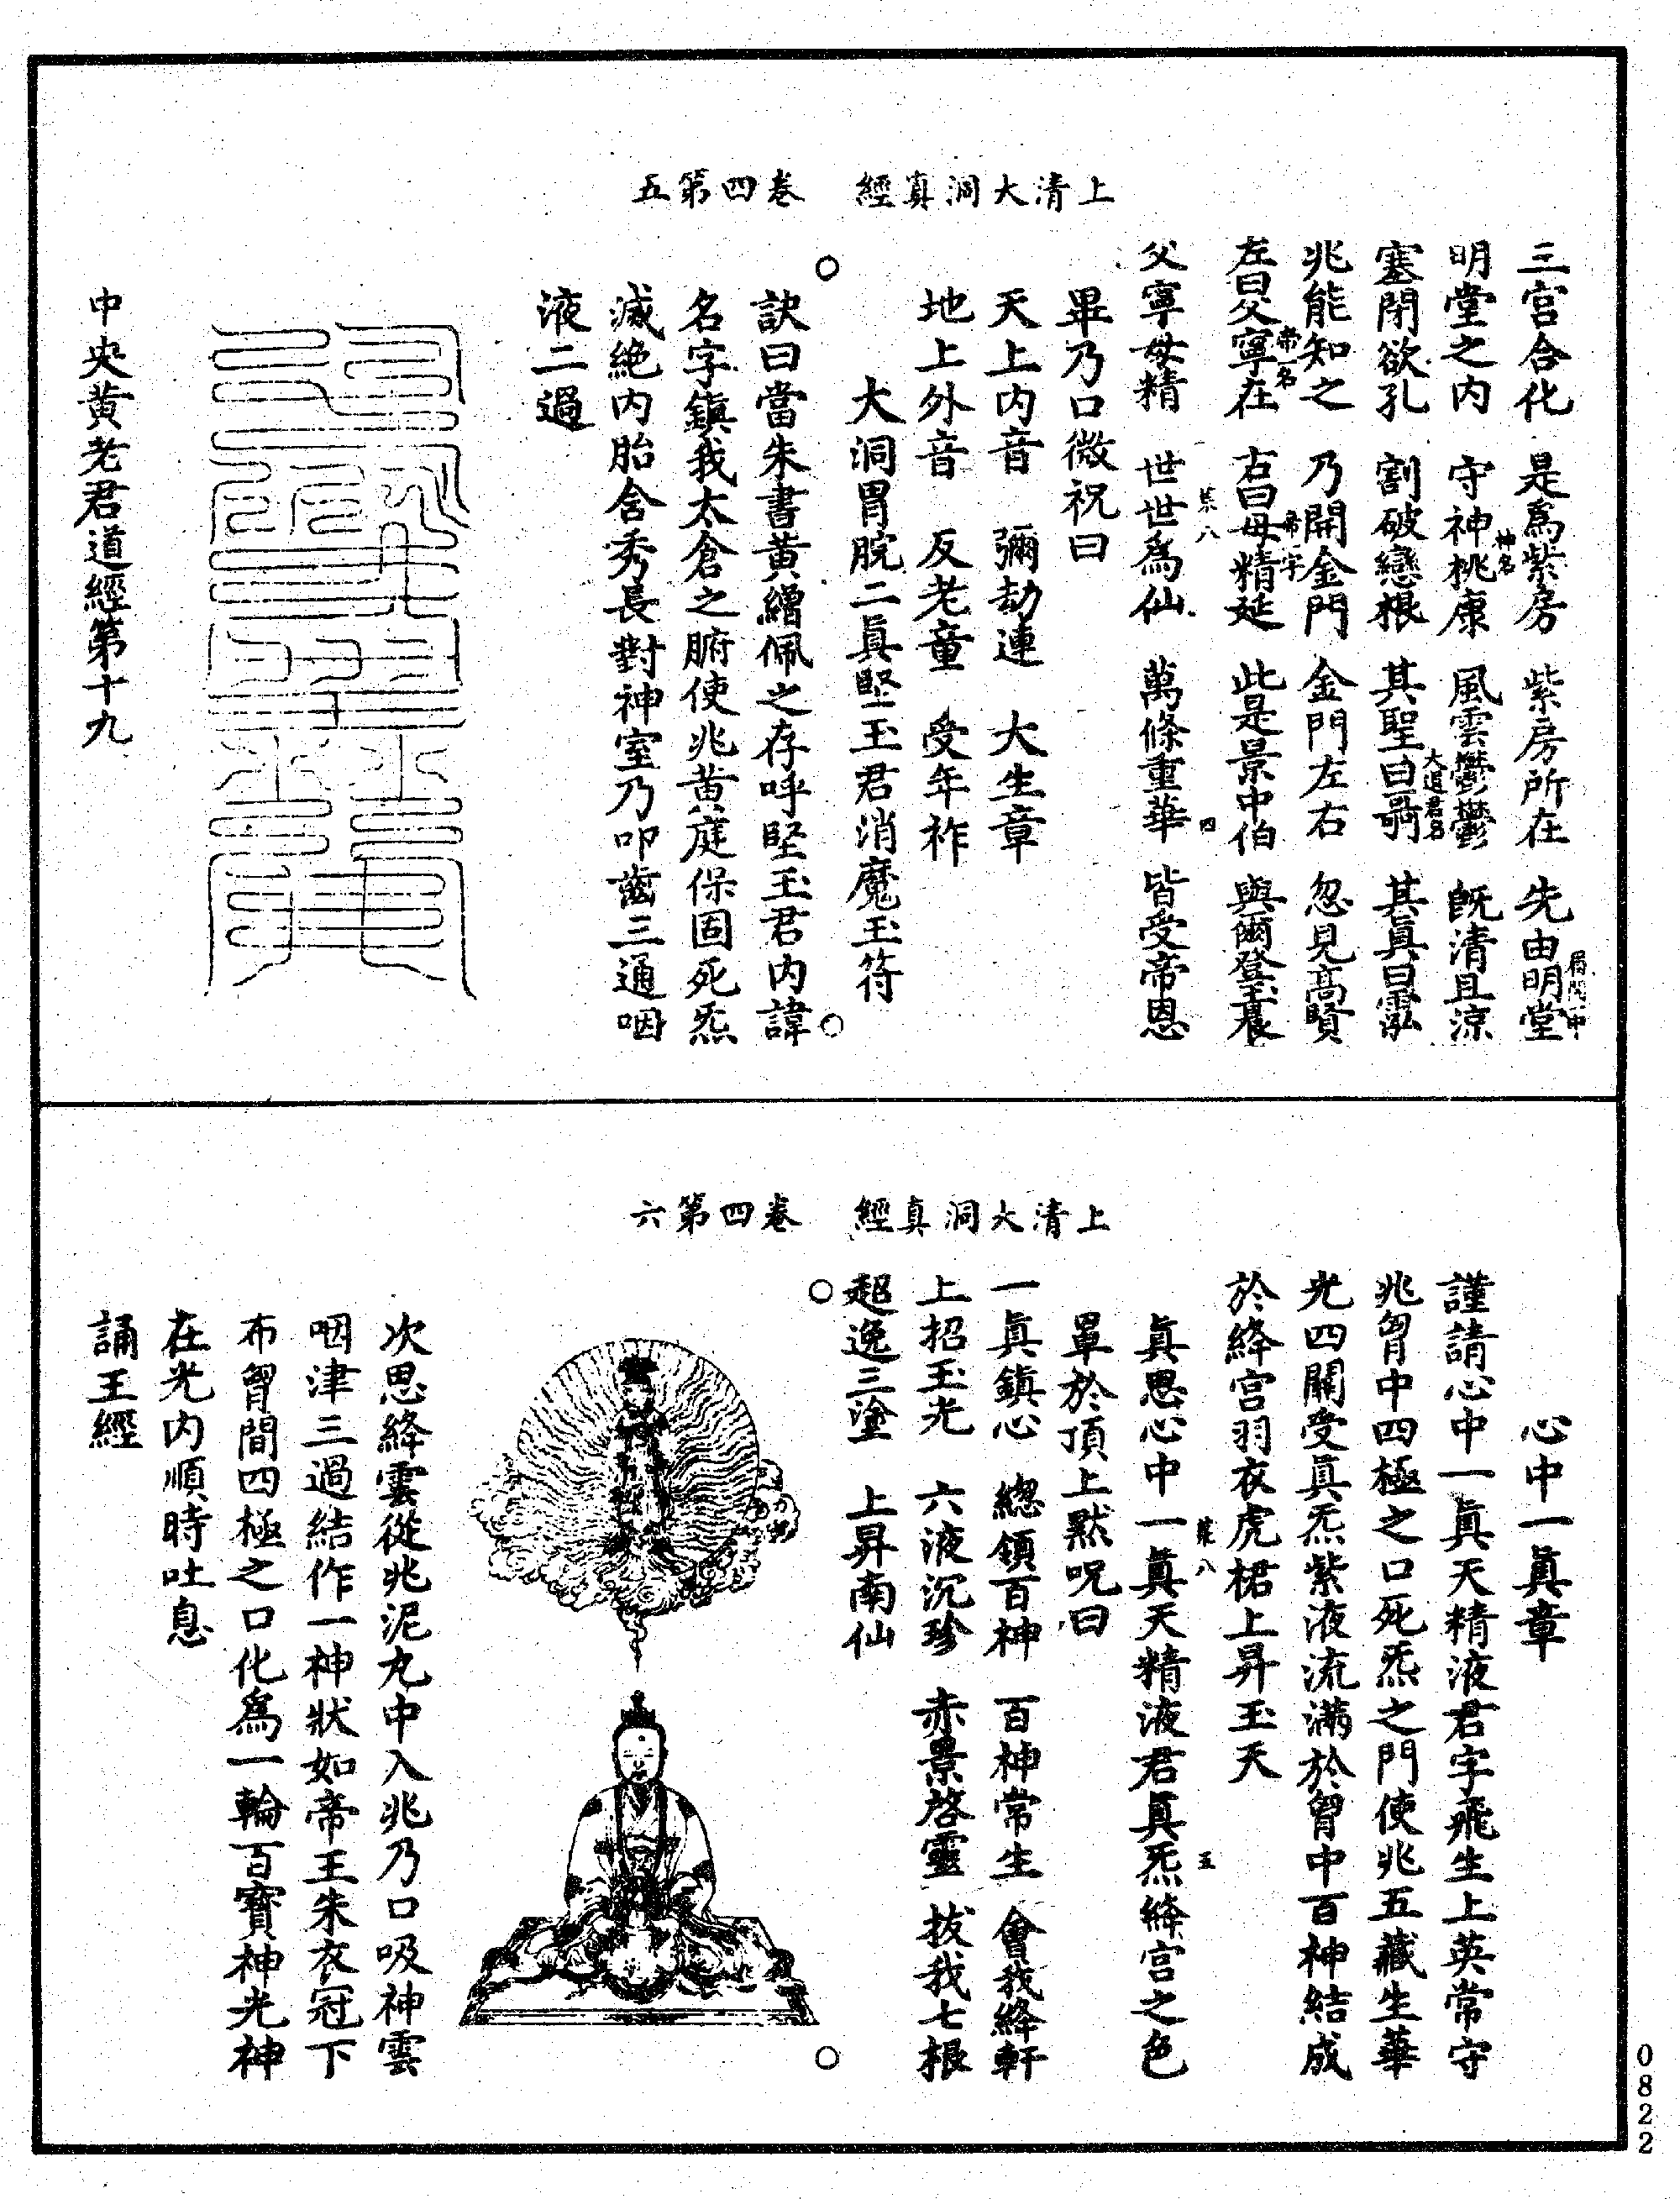 上清大洞真經　卷四第五
三宮合化　是爲紫房　紫房所在　先由明堂
明堂之内　守神桃康　風雲鬱鬱　旣清且涼
神名
塞閉欲孔　割破戀根　其聖曰　其眞曰
大道君名
兆能知之　乃開金門　金門左右　忽見高賢
左曰父寧在　右曰母精延　此是景中伯　與爾登玉晨
帝名
帝字
父寧母精　世世爲仙　萬條重華　皆受帝恩
畢乃口微祝曰
天上内音　彌劫連　大生章
地上外音　反老童　受年祚
大洞胃脘二眞堅玉君消魔玉符
訣曰當朱書黃繒佩之存呼堅玉君内諱
名字鎮我太倉之腑使兆黃庭保固死炁
滅絶内胎舍秀長對神室乃叩齒三通咽
液二過
中央黃老君道經第十九
上清大洞真經　卷四第六
心中一眞章
謹請心中一眞天精液君字飛生上英常守
兆胷中四極之口死炁之門使兆五藏生華
光四關受眞炁紫液流滿於胷中百神結成
於絳宮羽衣虎裙上昇玉天
眞思心中一眞天精液君眞炁絳宮之色
罩於頂上默呪曰
一眞鎮心　緫領百神　百神常生　會我絳軒
上招玉光　六液沉珍　赤景啓靈　拔我七根
超逸三塗　上昇南仙
次思絳雲從兆泥丸中入兆乃口吸神雲
咽津三過結作一神狀如帝王朱衣冠下
布胷間四極之口化爲一輪百寶神光神
在光内順時吐息
誦玉經
0822